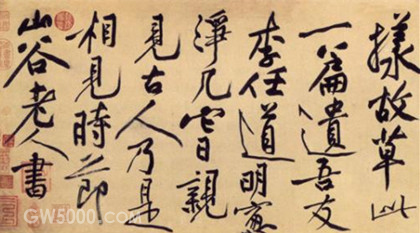 樣故草此
一篇遺吾友
李任道明窓
淨几它日親
見古人乃是
相見時節
山谷老人書
GW5000.com